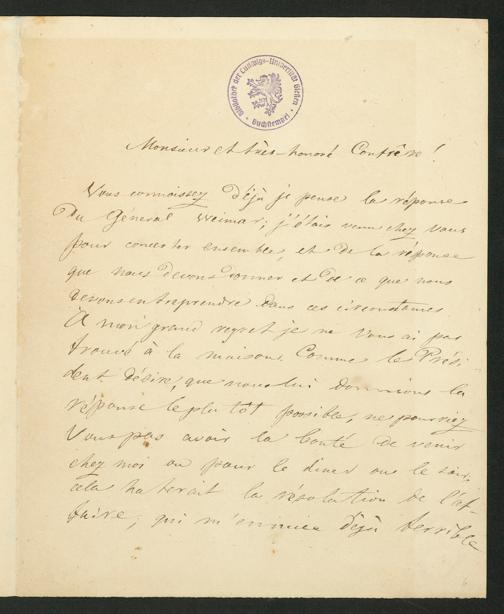 Bibliothek der Ludwigs-Universität Gießen
Buchstempel
Monsieur et très-honoré Confrère!
Vous connaissez déjà je pense la réponse
du Général Weimar; j'étais venu chez vous
pour concerter ensemble, et de la réponse
que nous devons donner et de ce que nous
devons entreprendre dans ces circonstances.
A mon grand regret je ne vous ai pas
trouvé à la maison. Comme le Prési-
dent désire, que nous lui donnions la
réponse le plutôt possible, ne pourriez
Vous pas avoir la bonté de venir
chez moi ou pour le diner ou le soir,
cela haterait la résolution de l'af-
faire, qui m'ennuee déjà terrible